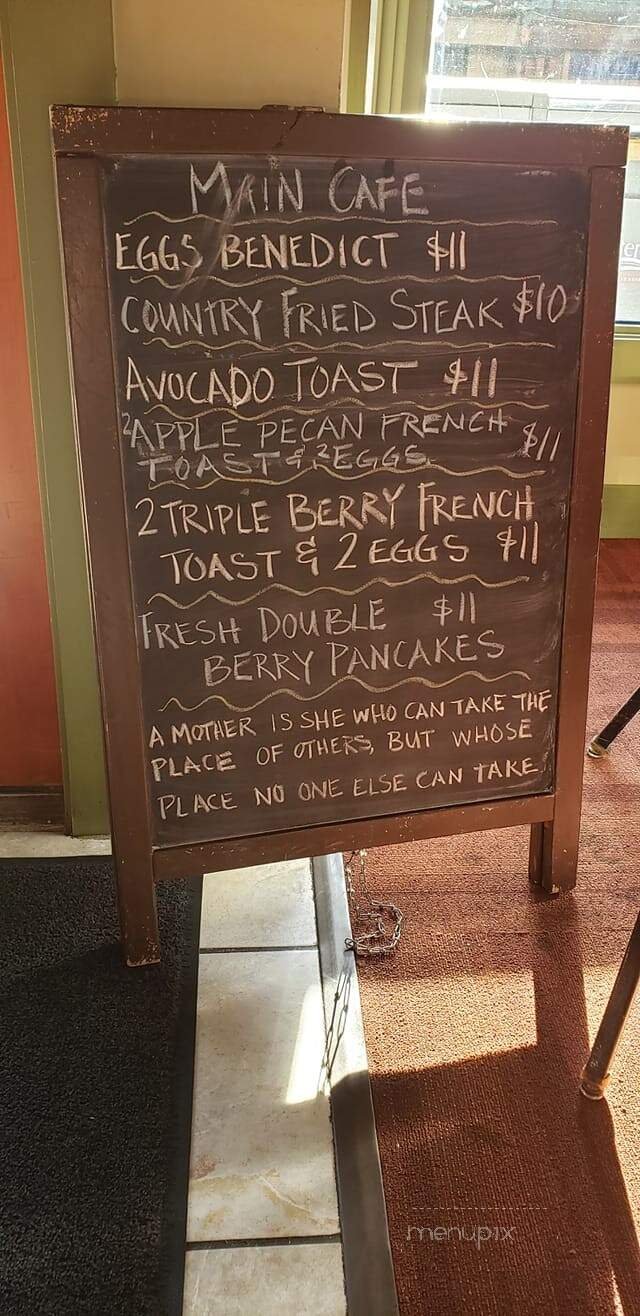 MAIN CAFE
EGGS BENEDICT $11
COUNTRY FRIED STEAK $10
AVOCADO TOAST $11
2 APPLE PECAN FRENCH
TOAST & 2 EGGS $11
2 TRIPLE BERRY FRENCH
TOAST & 2 EGGS $11
FRESH DOUBLE $11
BERRY PANCAKES
A MOTHER IS SHE WHO CAN TAKE THE
PLACE OF OTHERS, BUT WHOSE
PLACE NO ONE ELSE CAN TAKE
menupix